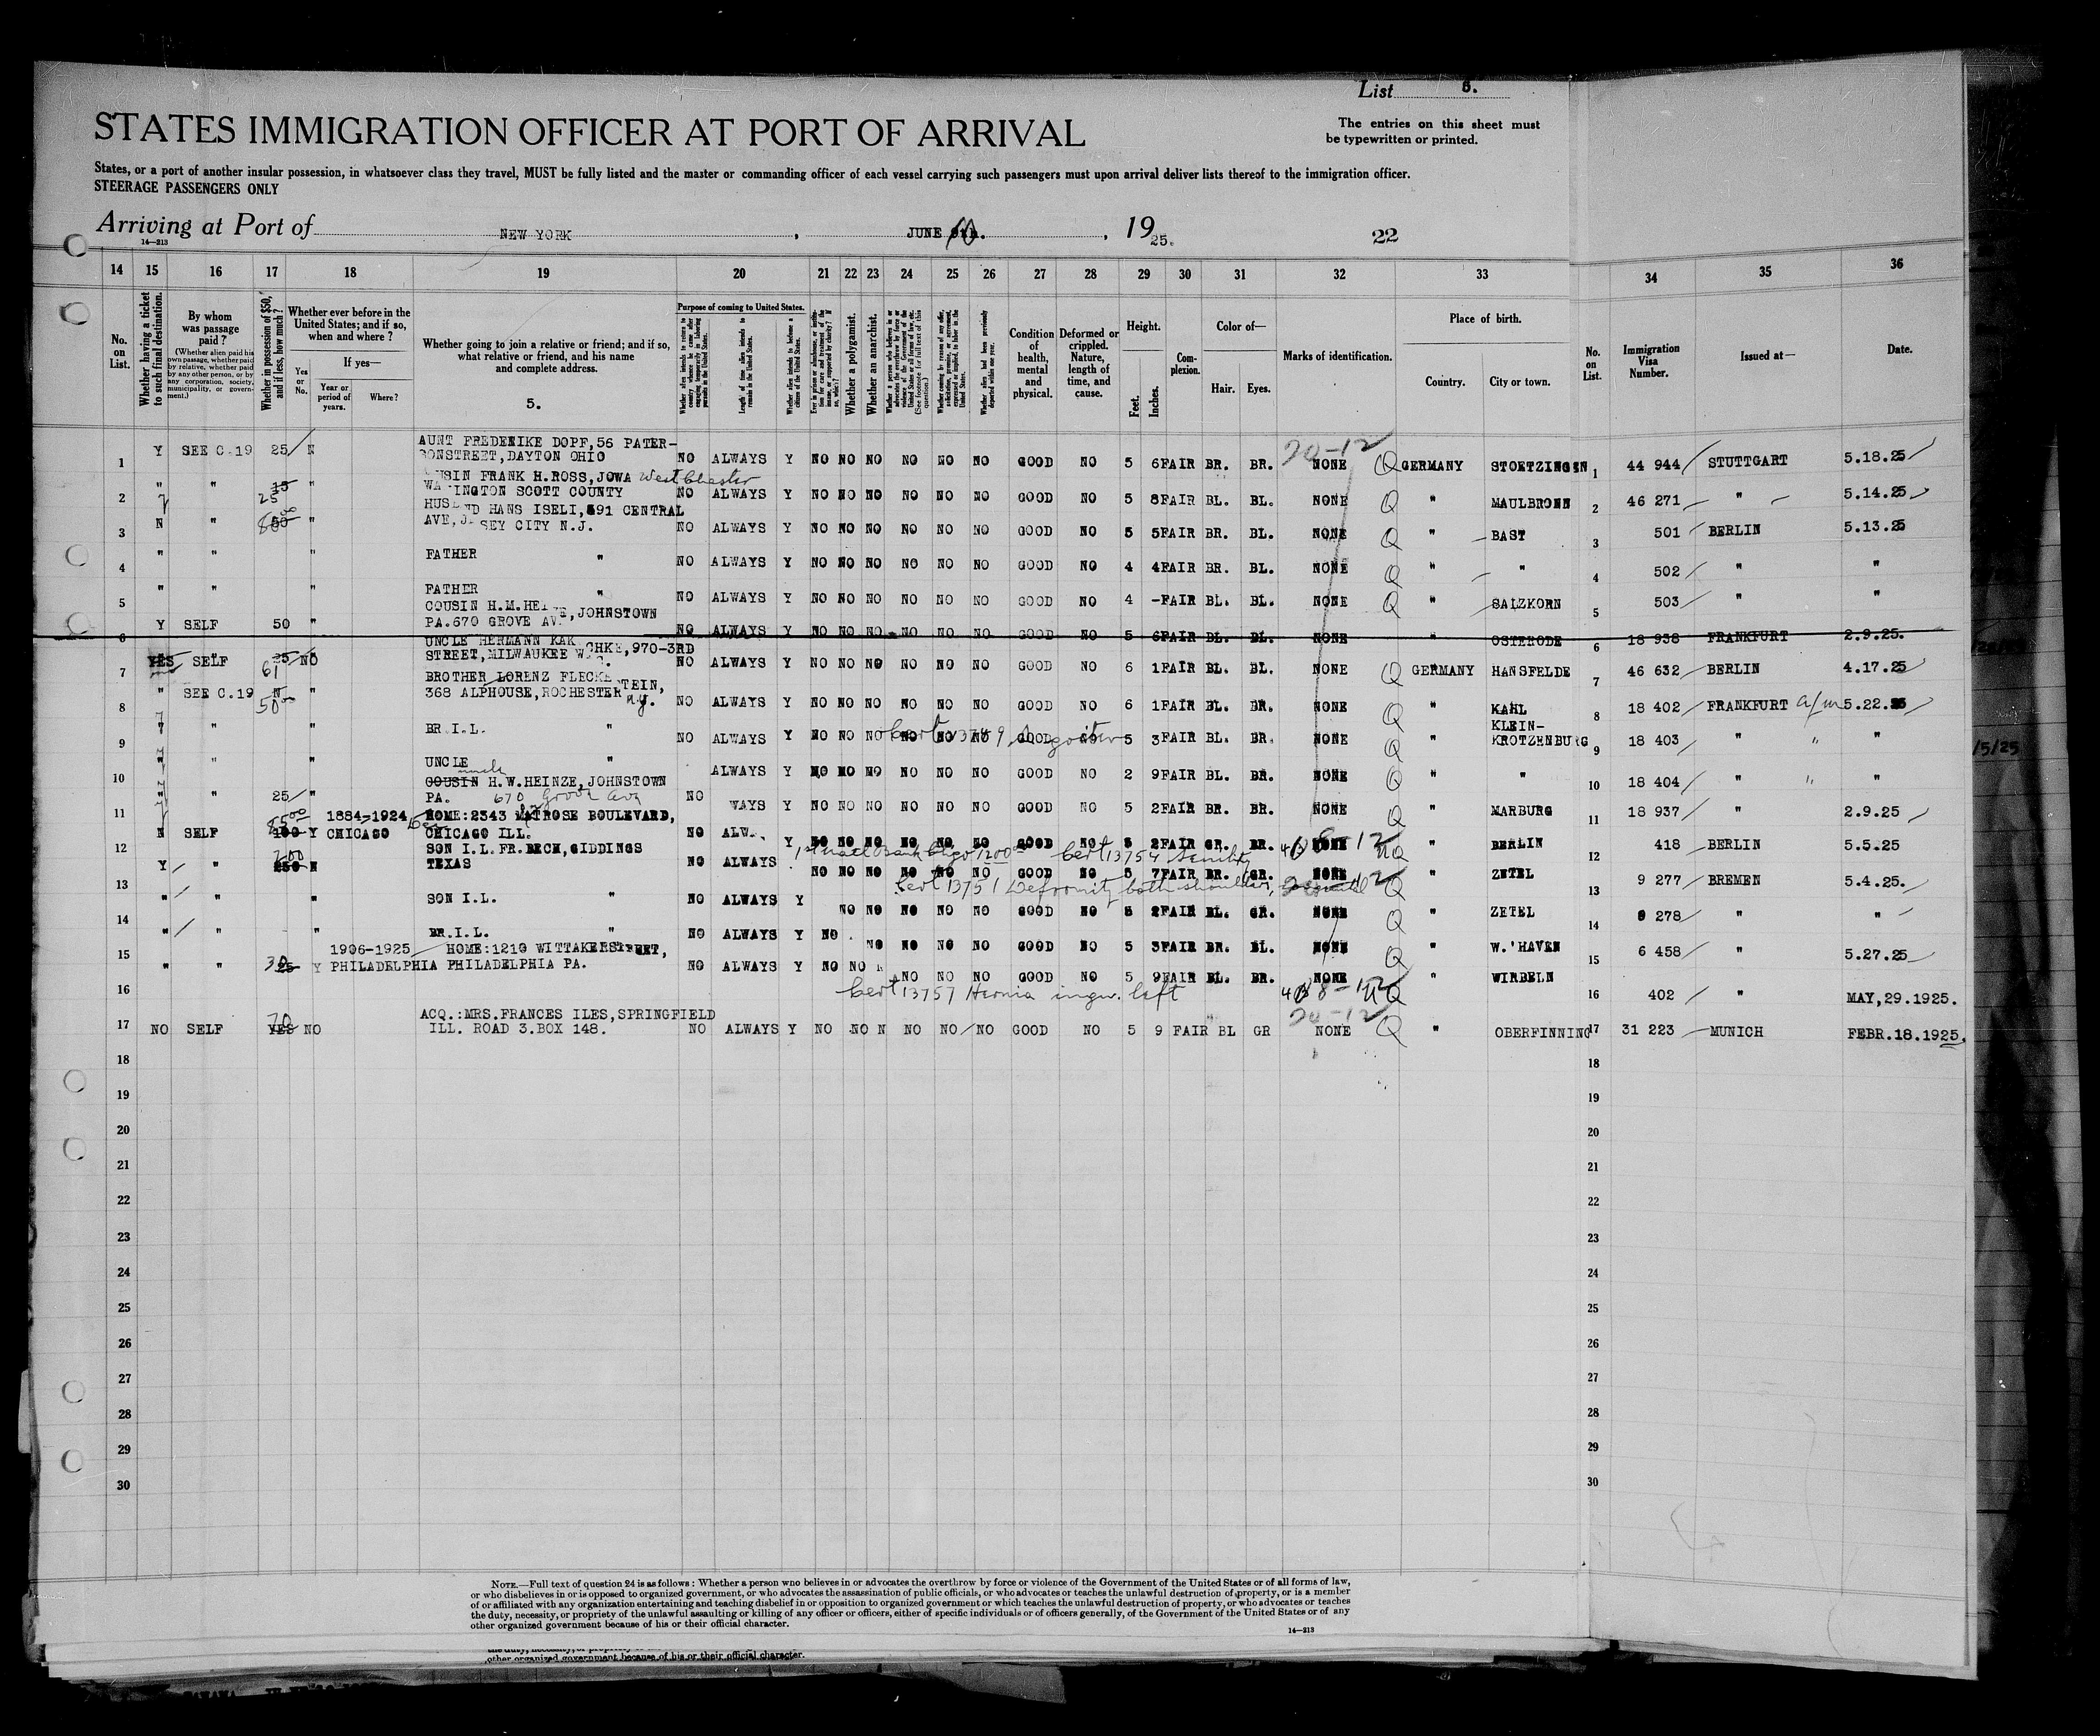 List 8.
STATES IMMIGRATION OFFICER AT PORT OF ARRIVAL
The entries on this sheet must
be typewritten or printed.
States, or a port of another insular possession, in whatsoever class they travel, MUST be fully listed and the master or commanding officer of each vessel carrying such passengers must upon arrival deliver lists thereof to the immigration officer.
STEERAGE PASSENGERS ONLY
Arriving at Port of NEW YORK, JUNE 10., 1925. 22
14—213
14 15 16 17 18 19 20 21 22 23 24 25 26 27 28 29 30 31 32 33 34 35 36
No. on List.
Whether having a ticket to such final destination.
By whom was passage paid?
(Whether alien paid his own passage, whether paid by relative, whether paid by any other person, or by any corporation, society, municipality, or government.)
Whether in possession of $50, and if less, how much?
Whether ever before in the United States; and if so, when and where?
If yes—
Yes or No.
Year or period of years.
Where?
Whether going to join a relative or friend; and if so, what relative or friend, and his name and complete address.
5.
Purpose of coming to United States.
Length of time alien intends to remain in the United States.
Whether alien intends to become a citizen of the United States.
Whether a polygamist.
Whether an anarchist.
Condition of health, mental and physical.
Deformed or crippled. Nature, length of time, and cause.
Height.
Feet. Inches.
Complexion.
Color of—
Hair. Eyes.
Marks of identification.
Place of birth.
Country. City or town.
No. on List.
Immigration Visa Number.
Issued at—
Date.
1 Y SEE C.19 25 N AUNT FREDERIKE DOPF,56 PATER-
SONSTREET,DAYTON OHIO NO ALWAYS Y NO NO NO NO NO NO GOOD NO 5 6 FAIR BR. BR. 20-12 NONE Q GERMANY STOETZINGEN 1 44 944 STUTTGART 5.18.25
2 " " 15 25 " COUSIN FRANK H.ROSS,JOWA West Chester
WASHINGTON SCOTT COUNTY NO ALWAYS Y NO NO NO NO NO NO GOOD NO 5 8 FAIR BL. BL. NONE Q " MAULBRONN 2 46 271 " 5.14.25
3 N " 50 " HUSBAND HANS ISELI,591 CENTRAL
AVE,JERSEY CITY N.J. NO ALWAYS Y NO NO NO NO NO NO GOOD NO 5 5 FAIR BR. BL. NONE Q " BAST 3 501 BERLIN 5.13.25
4 " " " FATHER " NO ALWAYS Y NO NO NO NO NO NO GOOD NO 4 4 FAIR BR. BL. NONE Q " " 4 502 " "
5 " " " FATHER " NO ALWAYS Y NO NO NO NO NO NO GOOD NO 4 - FAIR BL. BL. NONE Q " SALZKORN 5 503 " "
6 Y SELF 50 " COUSIN H.M.HEINZE,JOHNSTOWN
PA.670 GROVE AVE NO ALWAYS Y NO NO NO NO NO NO GOOD NO 5 6 FAIR BL. BL. NONE " OSTERODE 6 18 938 FRANKFURT 2.9.25.
7 YES SELF 25 61 NO UNCLE HERMANN KAKUSCHKE,970-3RD
STREET,MILWAUKEE WISC. NO ALWAYS Y NO NO NO NO NO NO GOOD NO 6 1 FAIR BL. BL. NONE Q GERMANY HANSFELDE 7 46 632 BERLIN 4.17.25
8 " SEE C.19 N 50 " BROTHER LORENZ FLECKENSTEIN,
368 ALPHOUSE,ROCHESTER N.Y. NO ALWAYS Y NO NO NO NO NO NO GOOD NO 6 1 FAIR BL. BR. NONE Q " KAHL 8 18 402 FRANKFURT a/m 5.22.25
9 " " " BR.I.L. " NO ALWAYS Y NO NO NO NO NO NO GOOD NO 5 3 FAIR BL. BR. NONE Q " KLEIN-
KROTZENBURG 9 18 403 " " "
10 " " " UNCLE " ALWAYS Y NO NO NO NO NO NO GOOD NO 2 9 FAIR BL. BR. NONE Q " " 10 18 404 " " "
11 " " 25 " COUSIN uncle H.W.HEINZE,JOHNSTOWN
PA. 670 Grove Ave NO WAYS Y NO NO NO NO NO NO GOOD NO 5 2 FAIR BR. BR. NONE Q " MARBURG 11 18 937 " 2.9.25
12 N SELF 100 Y 1884-1924 CHICAGO HOME:2343 MATROSE BOULEVARD,
CHICAGO ILL. NO ALW. Y NO NO NO NO NO NO GOOD NO 5 2 FAIR GR. BR. NONE " BERLIN 12 418 BERLIN 5.5.25
Cert 13754 Senility
13 Y " 250 200 N SON I.L.FR.BECK,GIDDINGS
TEXAS NO ALWAYS NO NO NO NO NO NO GOOD NO 5 7 FAIR BR. GR. NONE Q " ZETEL 13 9 277 BREMEN 5.4.25.
Cert 13751 Deformity both shoulders,
14 " " " SON I.L. " NO ALWAYS Y NO NO NO NO NO GOOD NO 5 2 FAIR BL. GR. NONE Q " ZETEL 14 9 278 " "
15 " " " BR.I.L. " NO ALWAYS Y NO NO NO NO NO GOOD NO 5 3 FAIR BR. BL. NONE Q " W.'HAVEN 15 6 458 " 5.27.25
16 " " 25 30 Y 1906-1925 PHILADELPHIA HOME:1210 WITTAKERSTREET,
PHILADELPHIA PA. NO ALWAYS Y NO NO N NO NO NO GOOD NO 5 9 FAIR BL. BR. NONE Q " WIRBELN 16 402 " MAY,29.1925.
Cert 13757 Hernia ingu. left
17 NO SELF YES 70 NO ACQ.:MRS.FRANCES ILES,SPRINGFIELD
ILL. ROAD 3.BOX 148. NO ALWAYS Y NO NO N NO NO NO GOOD NO 5 9 FAIR BL GR 20-12 NONE Q " OBERFINNING 17 31 223 MUNICH FEBR.18.1925.
18 18
19 19
20 20
21 21
22 22
23 23
24 24
25 25
26 26
27 27
28 28
29 29
30 30
/5/25
NOTE.—Full text of question 24 is as follows: Whether a person who believes in or advocates the overthrow by force or violence of the Government of the United States or of all forms of law,
or who disbelieves in or is opposed to organized government, or who advocates the assassination of public officials, or who advocates or teaches the unlawful destruction of property, or is a member
of or affiliated with any organization entertaining and teaching disbelief in or opposition to organized government or which teaches the unlawful destruction of property, or who advocates or teaches
the duty, necessity, or propriety of the unlawful assaulting or killing of any officer or officers, either of specific individuals or of officers generally, of the Government of the United States or of any
other organized government because of his or their official character.
14—213
other organized government because of his or their official character.